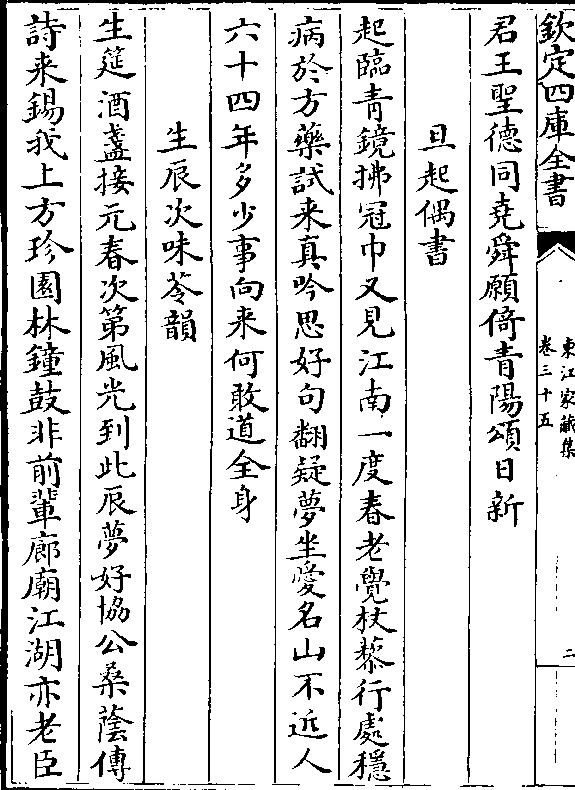 欽定四庫全書
東江家藏集
卷三十五
二
君王聖德同堯舜願倚青陽頌日新
旦起偶書
起臨青鏡拂冠巾又見江南一度春老覺杖藜行處穩
病於方藥試来真吟思好句翻疑夢坐愛名山不近人
六十四年多少事向来何敢道全身
生辰次味苓韻
生筵酒盞接元春次第風光到此辰夢好協公桑蔭傳
詩来錫我上方珍園林鐘鼓非前輩廊廟江湖亦老臣